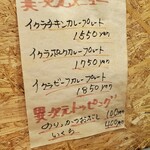 イクラチキンカレープレート
1550円
イクラポークカレープレート
1750円
イクラビーフカレープレート
1850円
異次元トッピング
100円
いくら 400円